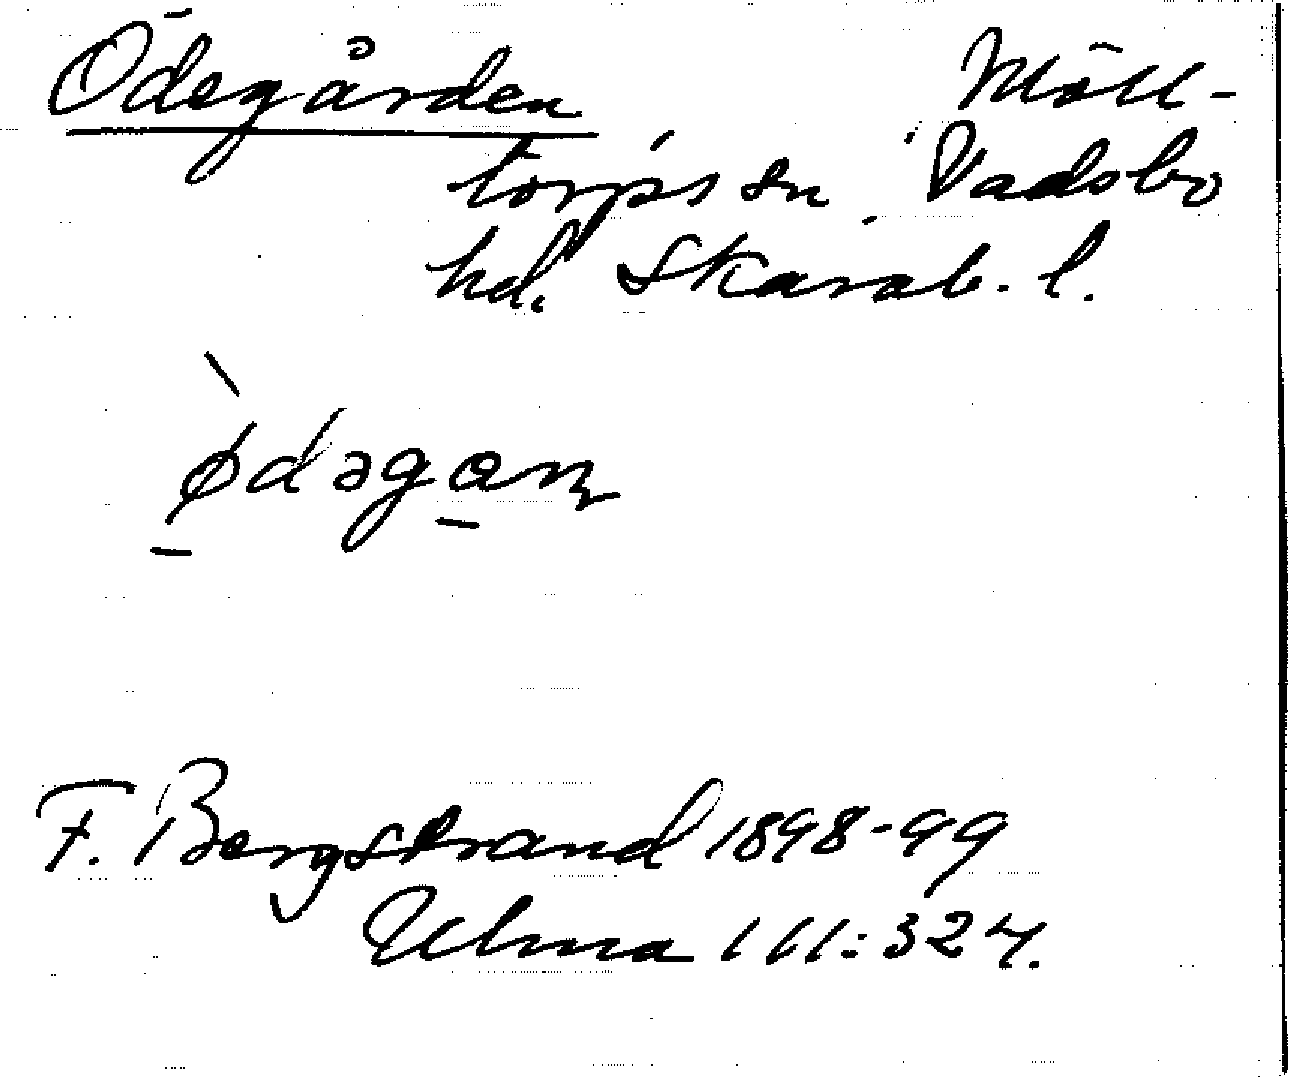 Ödegården Möll-
torps sn Vadsbo
hd. Skarab. l.
ødəgαɳ
F. Bergstrand 1898-99
Ulma 111:324.